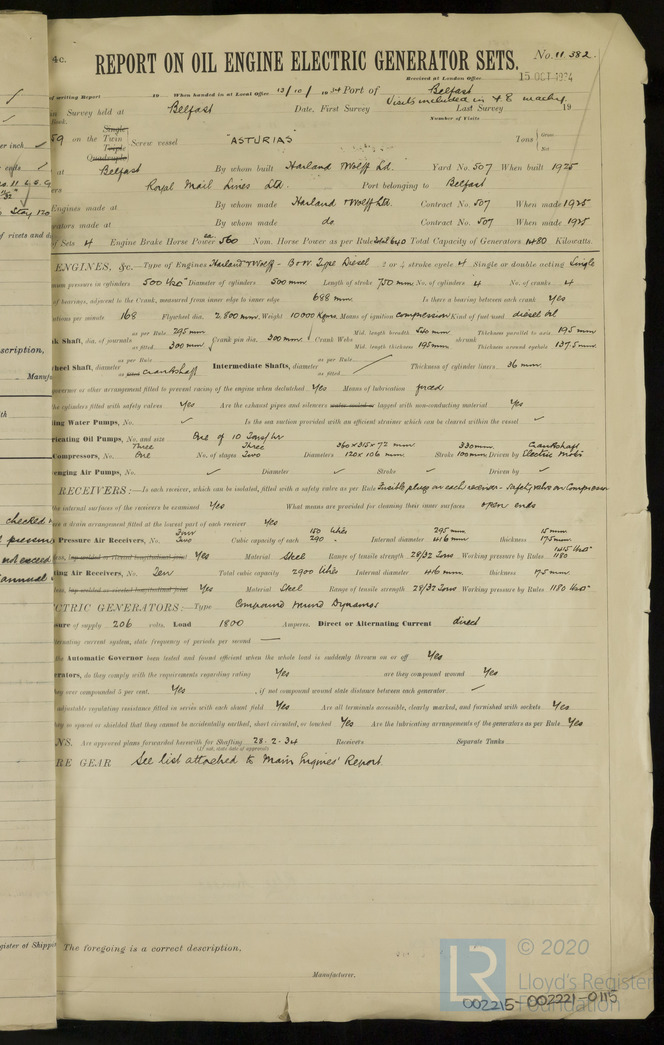 4c.
REPORT ON OIL ENGINE ELECTRIC GENERATOR SETS. No. 11,382.
Received at London Office 15 OCT 1934
of writing Report 19 When handed in at Local Office 13/10/1934 Port of Belfast
Survey held at Belfast Date, First Survey Visits included in 48 Last Survey 19
Number of Visits
on the Single Twin Triple Quadruple Screw vessel "ASTURIAS" Tons Gross Net
at Belfast By whom built Harland & Wolff Ld. Yard No. 507 When built 1925
Royal Mail Lines Ltd. Port belonging to Belfast
Engines made at By whom made Harland & Wolff Ltd. Contract No. 507 When made 1925
made at By whom made do. Contract No. 507 When made 1925
of Sets 4 Engine Brake Horse Power ea. 560 Nom. Horse Power as per Rule Total 640 Total Capacity of Generators 1480 Kilowatts.
ENGINES, &c.—Type of Engines Harland & Wolff - B & W Type Diesel 2 or 4 stroke cycle 4 Single or double acting Single
pressure in cylinders 500 Diameter of cylinders 500 mm Length of stroke 750 mm No. of cylinders 4 No. of cranks 4
of bearings, adjacent to the Crank, measured from inner edge to inner edge 688 mm Is there a bearing between each crank Yes
per minute 168 Flywheel dia. 2,800 mm Weight 10000 Means of ignition compression Kind of fuel used diesel oil
Shaft, dia. of journals as per Rule 295 mm as fitted 300 mm Crank pin dia. 300 mm Crank Webs Mid. length breadth 540 mm Mid. length thickness 195 mm shrunk Thickness parallel to axis 195 mm Thickness around eyehole 137.5 mm
Shaft, diameter as per Rule as fitted crankshaft Intermediate Shafts, diameter as per Rule as fitted Thickness of cylinder liners 36 mm
governor or other arrangement fitted to prevent racing of the engine when declutched Yes Means of lubrication forced
the cylinders fitted with safety valves Yes Are the exhaust pipes and silencers water cooled or lagged with non-conducting material Yes
Water Pumps, No. Is the sea suction provided with an efficient strainer which can be cleared within the vessel
Oil Pumps, No. and size One of 10 Tons/hr
Compressors, No. Three One No. of stages Three Two Diameters 360 x 315 x 72 mm 120 x 106 mm Stroke 330 mm 100 mm Driven by Crankshaft Electric Motor
Air Pumps, No. Diameter Stroke Driven by
RECEIVERS:—Is each receiver, which can be isolated, fitted with a safety valve as per Rule Fusible plug on each receiver - Safety valve on Compressor
the internal surfaces of the receivers be examined Yes What means are provided for cleaning their inner surfaces open ends
a drain arrangement fitted at the lowest part of each receiver Yes
Pressure Air Receivers, No. Four Two Cubic capacity of each 150 litres 290 Internal diameter 295 mm 416 mm thickness 15 mm 17.5 mm
lap welded or riveted longitudinal joint Yes Material Steel Range of tensile strength 28/32 Tons Working pressure by Rules 1180
Air Receivers, No. Ten Total cubic capacity 2900 litres Internal diameter 416 mm thickness 17.5 mm
lap welded or riveted longitudinal joint Yes Material Steel Range of tensile strength 28/32 Tons Working pressure by Rules 1180
ELECTRIC GENERATORS:—Type Compound Wound Dynamos
of supply 206 volts. Load 1800 Amperes. Direct or Alternating Current direct
alternating current system, state frequency of periods per second
the Automatic Governor been tested and found efficient when the whole load is suddenly thrown on or off Yes
do they comply with the requirements regarding rating Yes are they compound wound Yes
they over compounded 5 per cent. Yes , if not compound wound state distance between each generator
adjustable regulating resistance fitted in series with each shunt field Yes Are all terminals accessible, clearly marked, and furnished with sockets Yes
so spaced or shielded that they cannot be accidentally earthed, short circuited, or touched Yes Are the lubricating arrangements of the generators as per Rule Yes
Are approved plans forwarded herewith for Shafting 28.2.34 Receivers Separate Tanks
(If not, state date of approval)
RE GEAR See list attached to Main Engines' Report
The foregoing is a correct description.
Manufacturer.
LR © 2020
Lloyd's Register
Foundation
002215-002221-0115